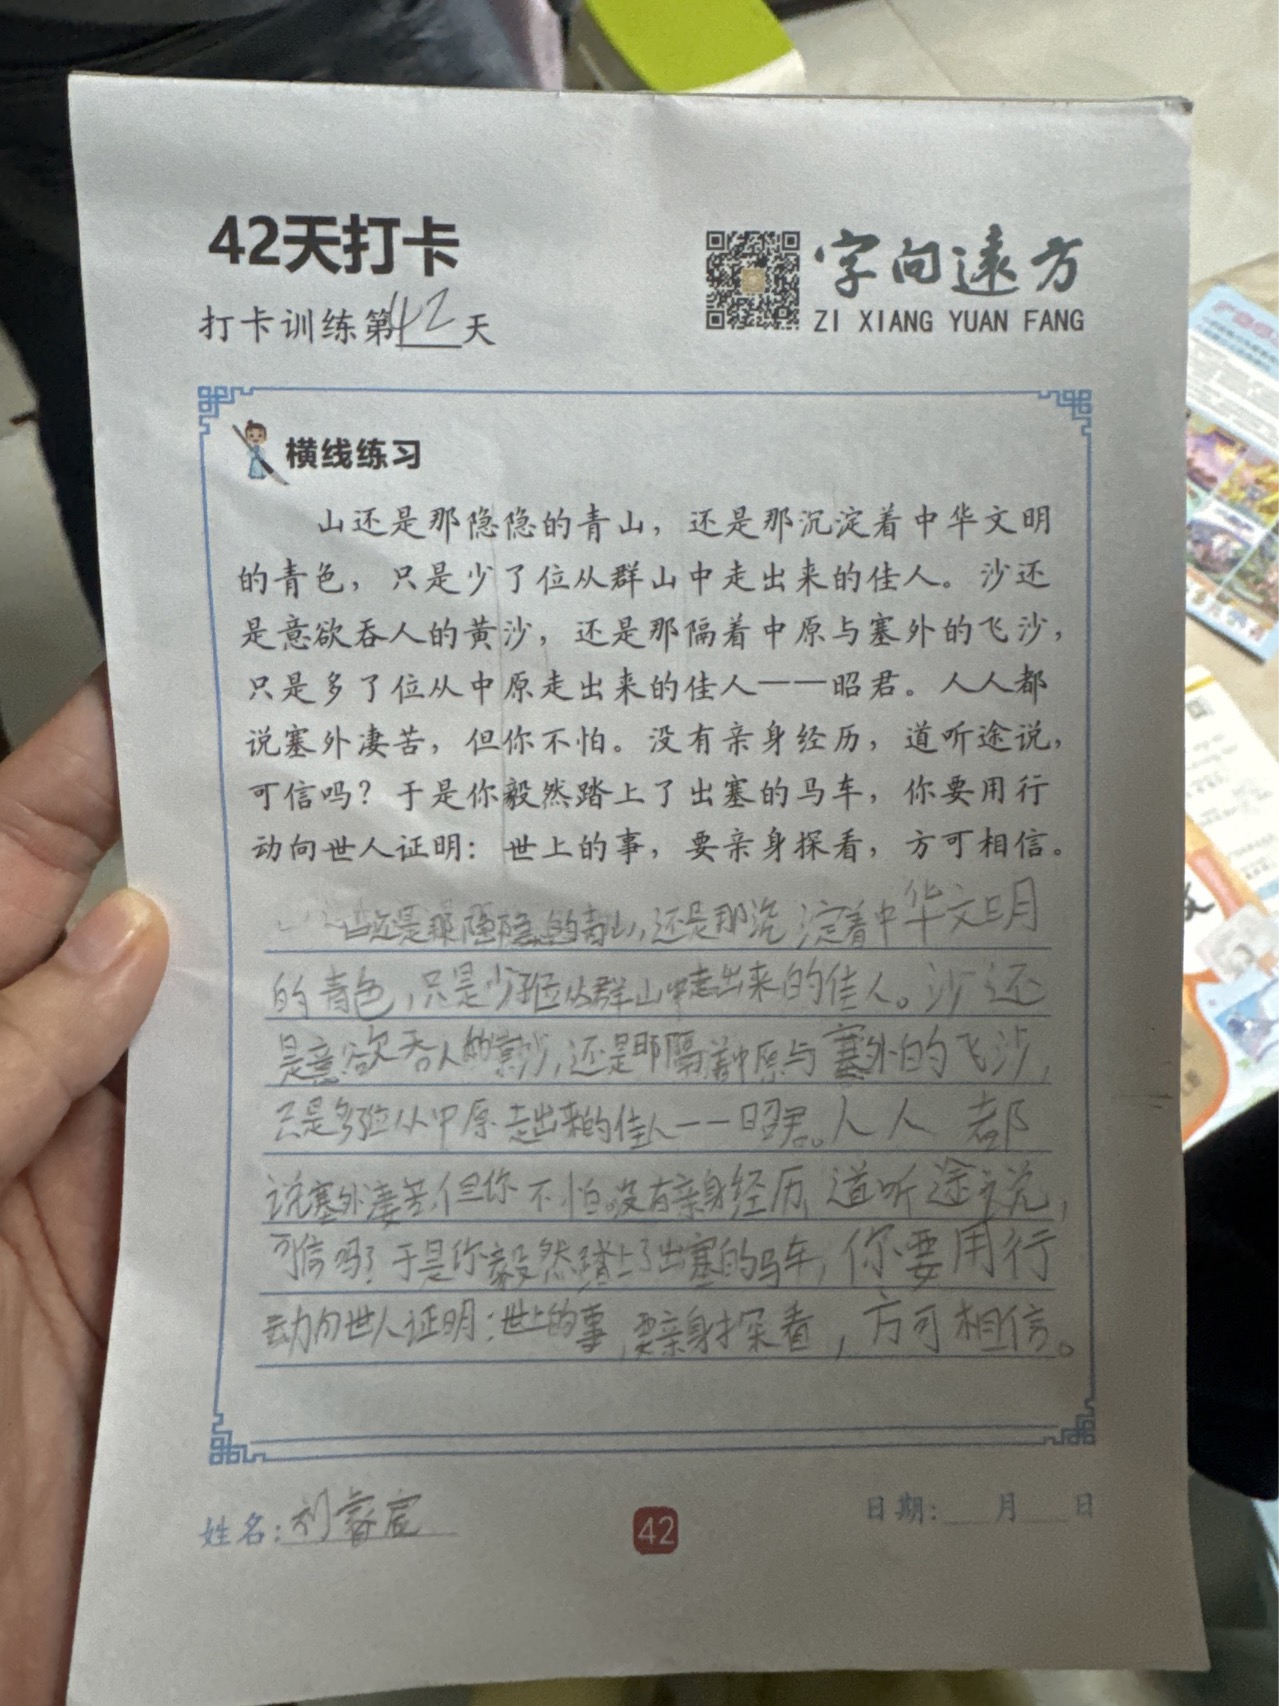 42天打卡
字向遠方
打卡训练第42天
ZI XIANG YUAN FANG
横线练习
山还是那隐隐的青山，还是那沉淀着中华文明
的青色，只是少了位从群山中走出来的佳人。沙还
是意欲吞人的黄沙，还是那隔着中原与塞外的飞沙，
只是多了位从中原走出来的佳人——昭君。人人都
说塞外凄苦，但你不怕。没有亲身经历，道听途说，
可信吗？于是你毅然踏上了出塞的马车，你要用行
动向世人证明：世上的事，要亲身探看，方可相信。
山还是那隐隐的青山，还是那沉淀着中华文明
的青色，只是少了位从群山中走出来的佳人。沙还
是意欲吞人的黄沙，还是那隔着中原与塞外的飞沙，
只是多了位从中原走出来的佳人——昭君。人人都
说塞外凄苦，但你不怕。没有亲身经历，道听途说，
可信吗？于是你毅然踏上了出塞的马车，你要用行
动向世人证明：世上的事，要亲身探看，方可相信。
姓名：刘睿宸
42
日期：___月___日